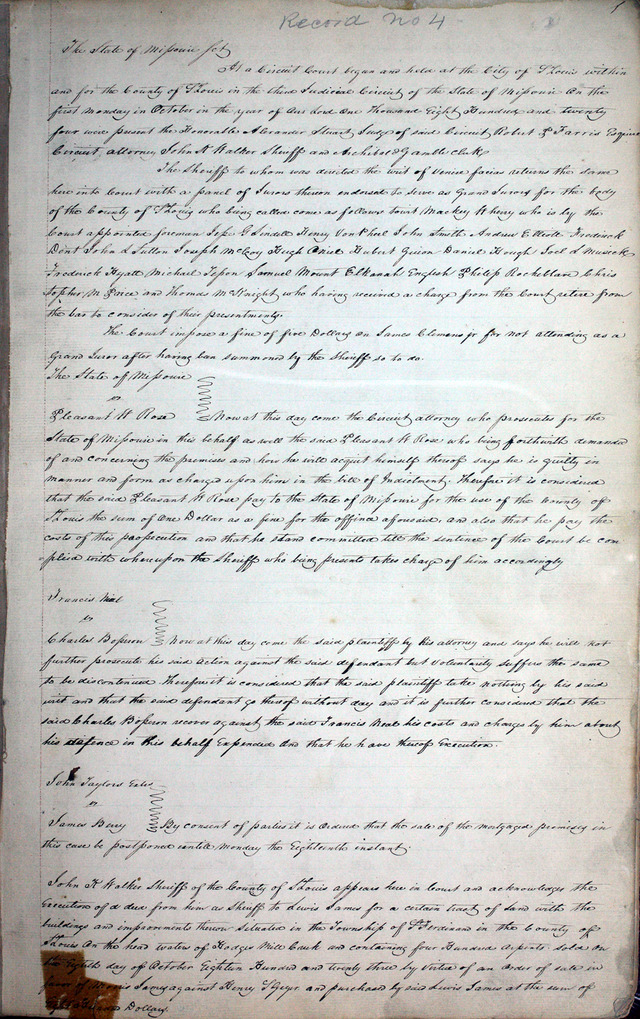 Record no 4
The State of Missouri Sct
At a Circuit Court begun and held at the City of St Louis within
and for the County of St Louis in the third Judicial Circuit of the State of Missouri On the
first Monday in October in the year of Our Lord One Thousand Eight Hundred and twenty
four were present the Honorable Alexander Stuart Judge of said Circuit Robert P Farris Esquire
Circuit attorney John K Walker Sheriff and Archibald Gamble Clerk
The Sheriff to whom was directed the writ of venire facias returns the same
here into Court with a panel of Jurors thereon endorsed to serve as Grand Jurors for the body
of the County of St Louis who being called come as follows towit Mackey Wherry who is by the
Court appointed foreman Jesse G Lindell Henry Von Phul John Smith Andrew Elliott Frederick
Dent John L Sutton Joseph McCoy Hugh Hubert Guion Daniel Hough Joel L Musick
Frederick Hyatt Michael Tesson Samuel Mount Elkanah English Philip Rocheblave Chris
topher M Price and Thomas McKnight who having received a charge from the Court retire from
the bar to consider of their presentments.
The Court impose a fine of five Dollars on James Clemens jr for not attending as a
Grand Juror after having ban summoned by the Sheriff so to do.
The State of Missouri
vs
Pleasant W Rose Now at this day come the Circuit attorney who prosecutes for the
State of Missouri in this behalf as will the said Pleasant W Rose who being forthwith demanded
of and concerning the premises and how he will acquit himself thereof says he is guilty in
manner and form as charged upon him in the bill of Indictment. Therefore it is considered
that the said Pleasant W Rose pay to the State of Missouri for the use of the County of
St Louis the sum of One Dollar as a fine for the offence aforesaid and also that he pay the
costs of this prosecution and that he stand committed till the sentence of the Court be com
plied with whereupon the Sheriff who being presents takes charge of him accordingly
Francis Neal
vs
Charles Bosseron Now at this day come the said plaintiff by his attorney and says he will not
further prosecute his said action against the said defendant but voluntarily suffers the same
to be discontinued Therefore it is considered that the said plaintiff take nothing by his said
writ and that the said defendant go thereof without day and it is further considered that the
said Charles Bosseron recover against the said Francis Neal his costs and charges by him about
his defence in this behalf Expended And that he have thereof Execution.
John Taylors Exrs
vs
James Berry By consent of parties it is Ordered that the sale of the mortgaged premises in
this case be postponed untill Monday the Eighteenth instant.
John K Walker Sheriff of the County of St Louis appears here in Court and acknowledges the
Execution of a deed from him as Sheriff to Lewis James for a certain tract of land with the
buildings and improvments thereon Situated in the Township of St Ferdinand in the County of
St Louis On the head waters of Hodges Mill Creek and containing four Hundred arpents sold on
the Eighth day of October Eighteen Hundred and twenty three by Virtue of an Order of sale in
favor of Morris James against Henry S Geyer and purchased by said Lewis James at the sum of
Dollars.